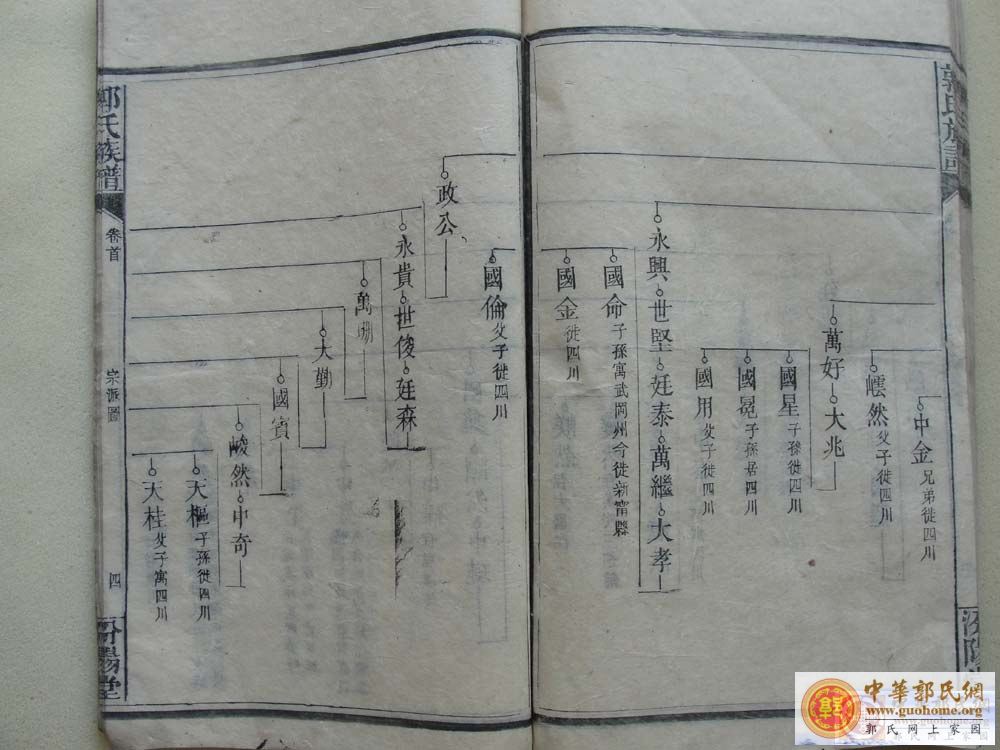 郭氏族譜
中金 兄弟徙四川
然 父子徙四川
萬好 大兆
國星 子孫徙四川
國冕 子孫居四川
國用 父子徙四川
永興 世堅 廷泰 萬繼 大孝
國命 子孫寓武岡州今徙新甯縣
國金 徙四川
國倫 父子徙四川
政公
永貴 世俊 廷森
萬
大勤
國賓
峻然 中奇
大樞 子孫徙四川
大桂 父子寓四川
郭氏族譜
卷首
宗派圖
四
汾陽堂
汾陽
中華郭氏網
www.guohome.org
郭氏網上家園